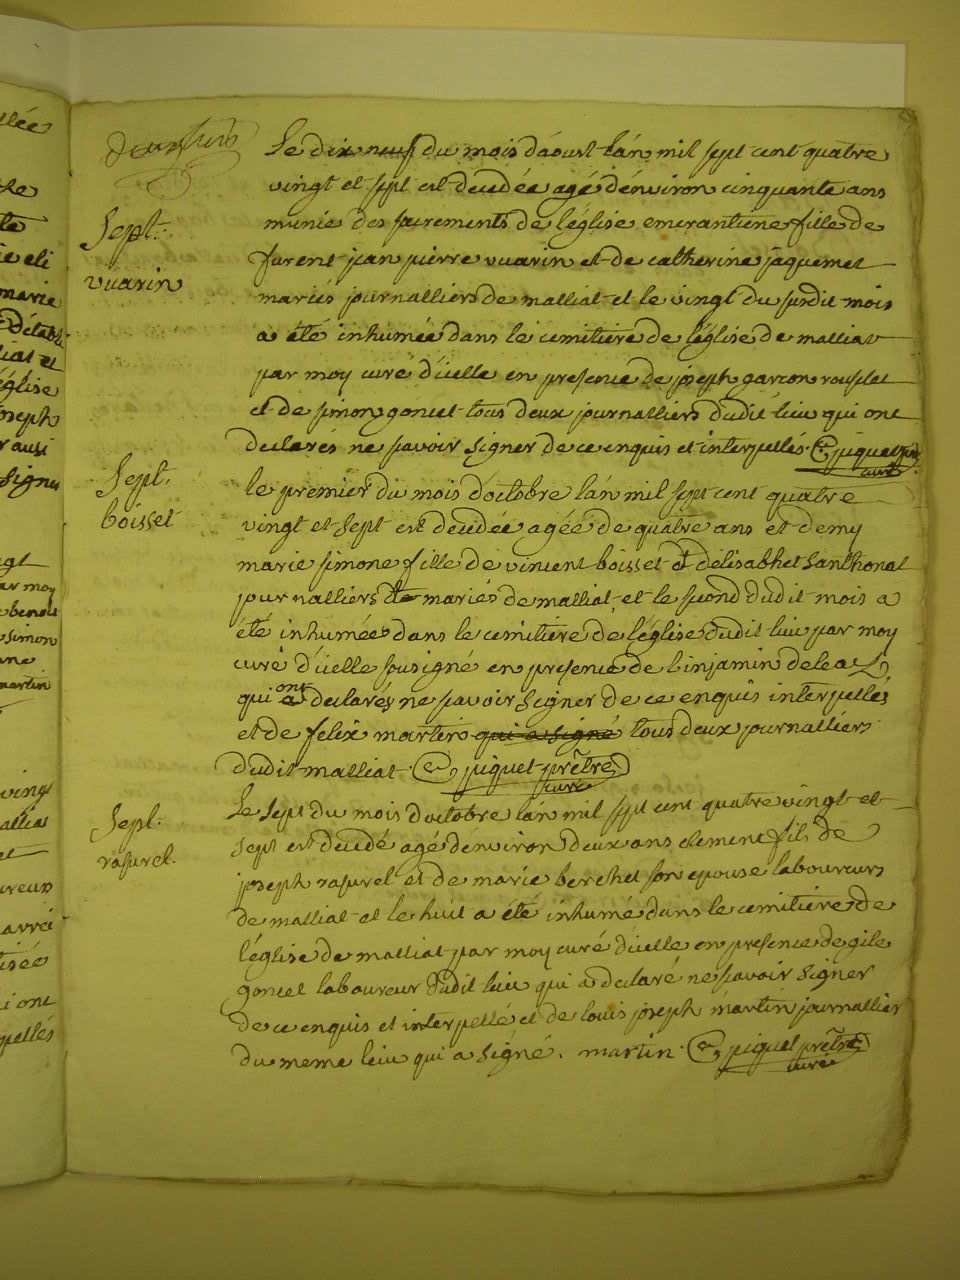 Sept.
vuarin
Le dix neuf du mois d'aoust l'an mil sept cent quatre
vingt et sept est decedée agé d'environ cinquante ans
munie des sacrements de l'église emerantiene fille de
furent jean pierre vuarin et de catherine jaquemet
mariés journalliers de malliat et le vingt du susdit mois
a été inhumée dans le cemitiere de l'église de malliat
par moy curé d'icelle en presence de joseph garcon
et de simon goncet tous deux journalliers dudit lieu qui ont
declarés ne savoir signer de ce enquis et interpellés. piquet
curé
Sept.
boisset
le premier du mois d'octobre l'an mil sept cent quatre
vingt et sept est decedée agée de quatre ans et demy
marie simone fille de vincent boisset et d'elisabhet santhonat
journalliers mariés de malliat, et le second dudit mois a
été inhumée dans le cemitiere de l'église dudit lieu par moy
curé d'icelle sousigné en presence de binjamin
qui ont declarés ne savoir signer de ce enquis interpellés
et de felix martin qui a signé tous deux journalliers
dudit malliat. piquet prêtre
curé
Sept.
rasurel.
Le sept du mois d'octobre l'an mil sept cent quatre vingt et
sept est decedé agé d'environ deux ans clement fils de
joseph rasurel et de marie berchet son epouse laboureurs
de malliat et le huit a été inhumé dans le cemitiere de
l'église de malliat par moy curé d'icelle en presence de gile
goncet laboureur dudit lieu qui a declaré ne savoir signer
de ce enquis et interpellé et de louis joseph martin journallier
du meme lieu qui a signé. martin. piquet prêtre
curé